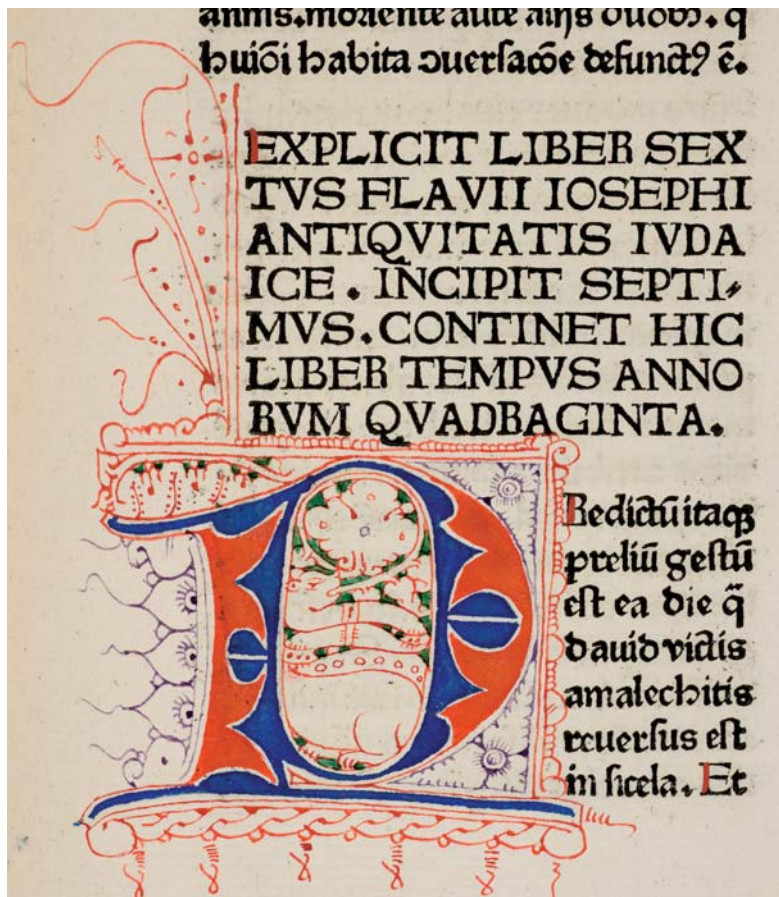 huiōi habita ɔuersacōe defunct⁹ ē.
EXPLICIT LIBER SEX
TVS FLAVII IOSEPHI
ANTIQVITATIS IVDA
ICE . INCIPIT SEPTI⸗
MVS . CONTINET HIC
LIBER TEMPVS ANNO
RVM QVADRAGINTA.
P
Redictū itaqꝫ
preliū gestū
est ea die q̄
dauid victis
amalechitis
reuersus est
in sicela. Et